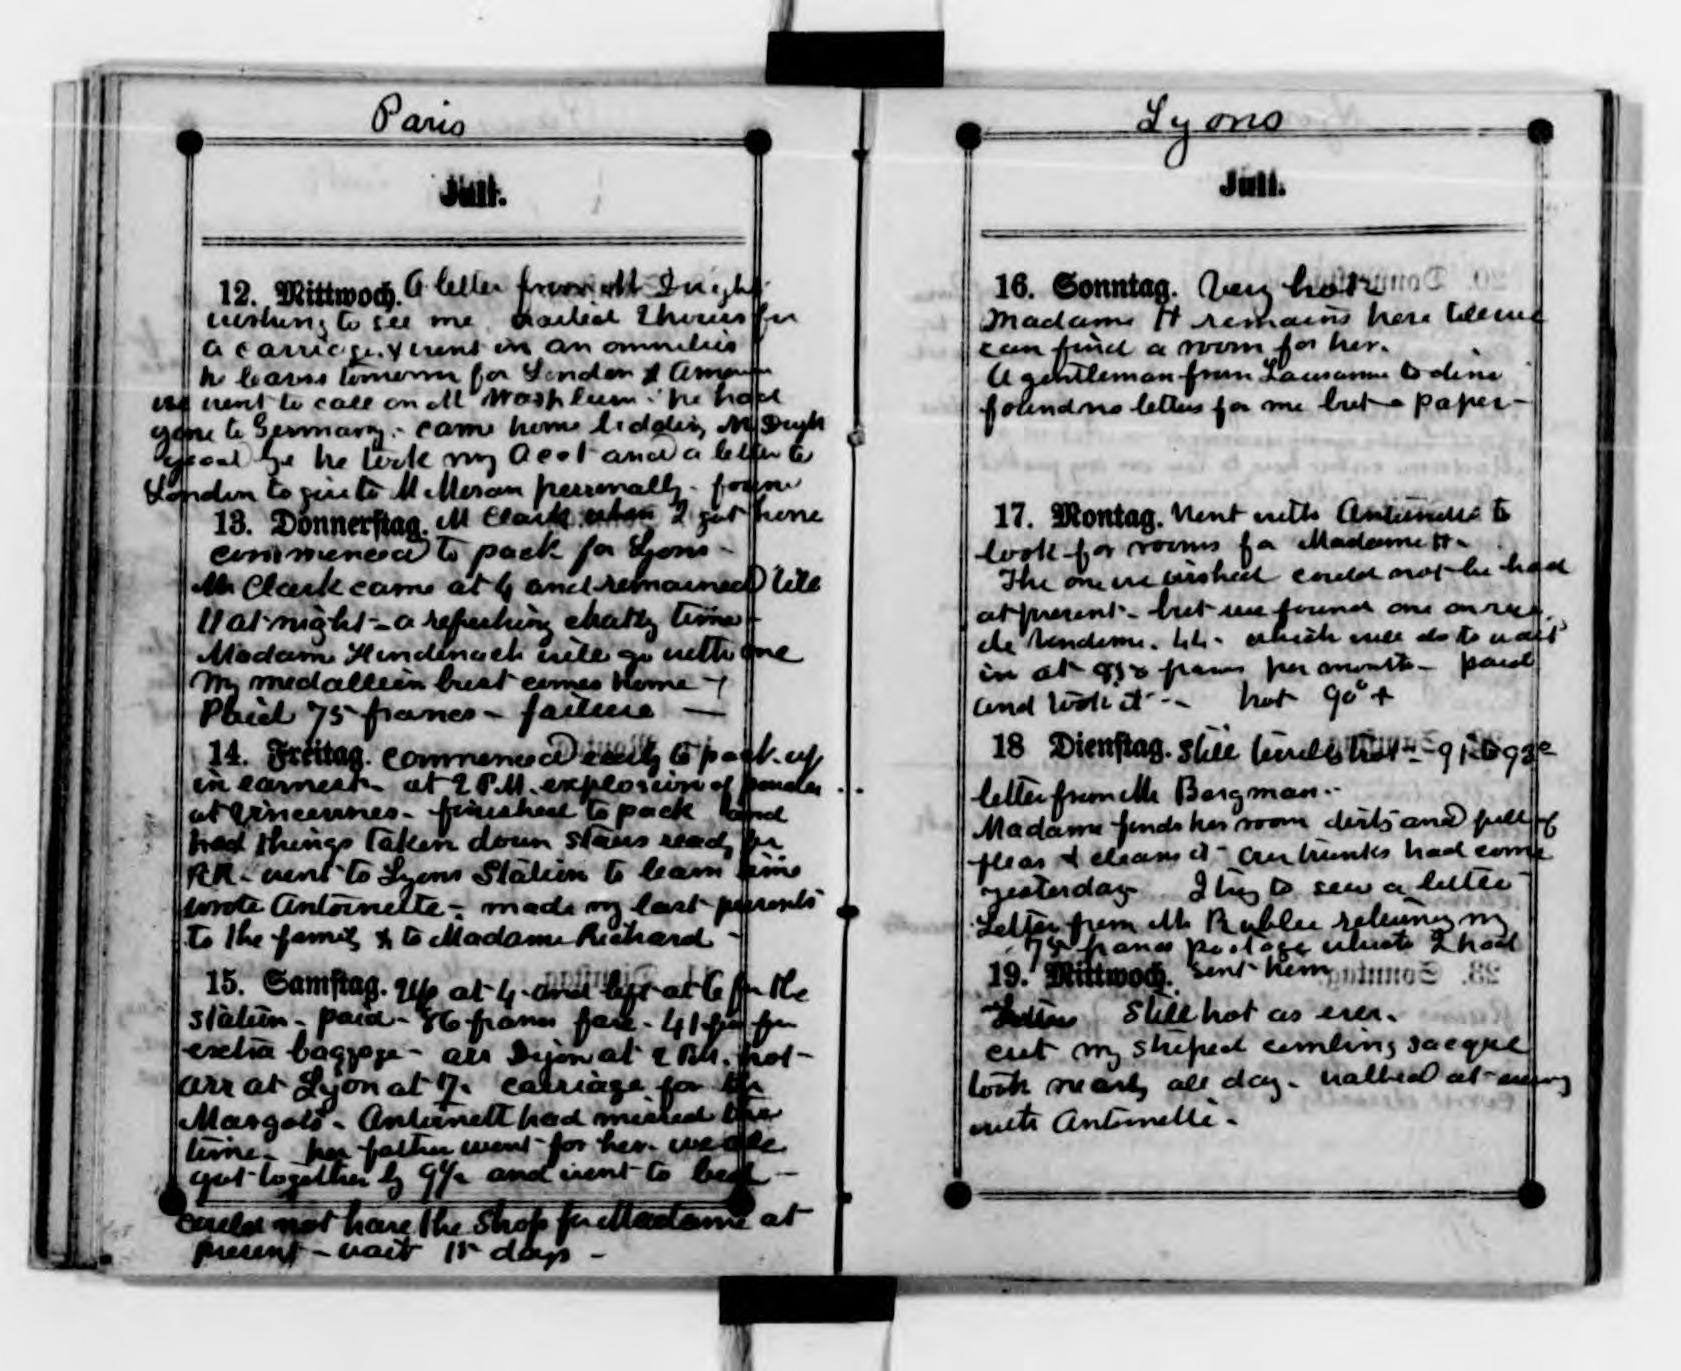 Paris
Juli.
12. Mittwoch. A letter from M Dwight
wishing to see me waited 2 hours for
a carriage & went in an omnibus
he leaves tomorrow for London &
we went to call on M Washburn. he had
gone to Germany. - came home bidding Mr
good bye he took my acct and a letter to
London to give to M personally - found
13. Donnerstag. M Clark when I got home
commenced to pack for Lyons -
Mr Clark came at 4 and remained till
11 at night - a refreshing chatty time -
Madame will go with me
My medallion bust comes home -
Paid 75 francs - failure -
14. Freitag. Commenced early to pack up
in earnest - at 2 P.M. explosion of powder
at Vincennes - finished to pack and
had things taken down stairs ready for
RR - went to Lyons Station to learn time
wrote Antoinette - made my last presents
to the family & to Madame Richard -
15. Samstag. Up at 4 and left at 6 for the
station - paid - 86 francs fare - 41 for
extra baggage - arr Dijon at 2 P.M. hot -
arr at Lyon at 7. carriage for the
Margots - Antoinett had missed the
time - her father went for her. we all
got together by 9½ and went to bed -
Could not have the shop for Madame at
present - wait 15 days -
Lyons
Juli.
16. Sonntag. Very hot
Madame H remains here till we
can find a room for her.
A gentleman from Lausanne to dine
found no letters for me but a paper -
17. Montag. Went with Antoinette to
look for rooms for Madame H -
The one we wished could not be had
at present - but we found one on rue
de Vendome. 44 - which will do to wait
in at francs per month - paid
and took it - - hot 90° +
18 Dienstag. Still terribly hot - 91 to 93°
letter from Mr Bergman -
Madame finds her room dirty and full of
fleas & cleans it - Our trunks had come
yesterday I try to sew a little -
Letter from Mr Rublee returning my
francs postage which I had
19. Mittwoch. Sent him
Still hot as ever.
cut my striped sacque
took nearly all day. walked at
with Antoinette -